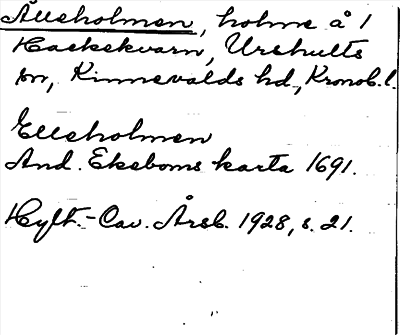 Älleholmen, holme å 1
Hackekvarn, Urshults
sn, Kinnevalds hd, Kronob. l.
Elleholmen
And. Ekeboms karta 1691.
Hylt.-Cav. Årsb. 1928, s. 21.